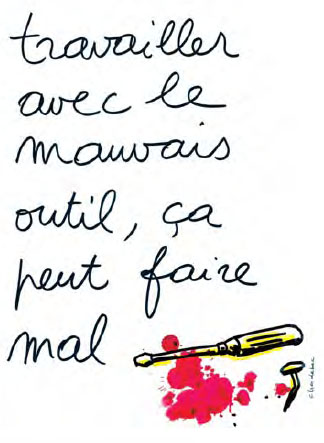 travailler
avec le
mauvais
outil, ça
peut faire
mal